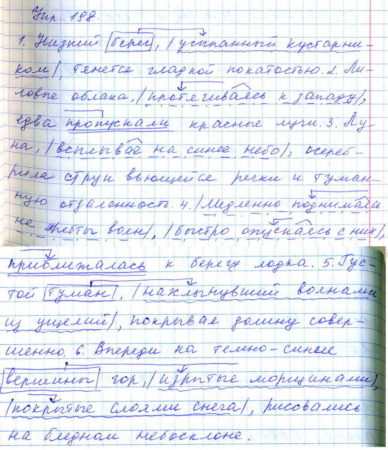 Упр. 198
1. Низкий берег, усыпанный кустарни-
ком, тянется гладкой покатостью. 2. Ли-
ловые облака, протягиваясь к западу,
едва пропускали красные лучи. 3. Лу-
на, всплывая на синее небо, осереб-
рила струи вьющейся речки и туман-
ную отдаленность. 4. Медленно поднимаясь
на хребты волн, быстро опускаясь с них,
приближалась к берегу лодка. 5. Гус-
той туман, нахлынувший волнами
из ущелий, покрывае долину совер-
шенно. 6. Впереди на темно-синее
вершины гор, изрытые морщинами,
покрытые слоями снега, рисовались
на бледном небосклоне.